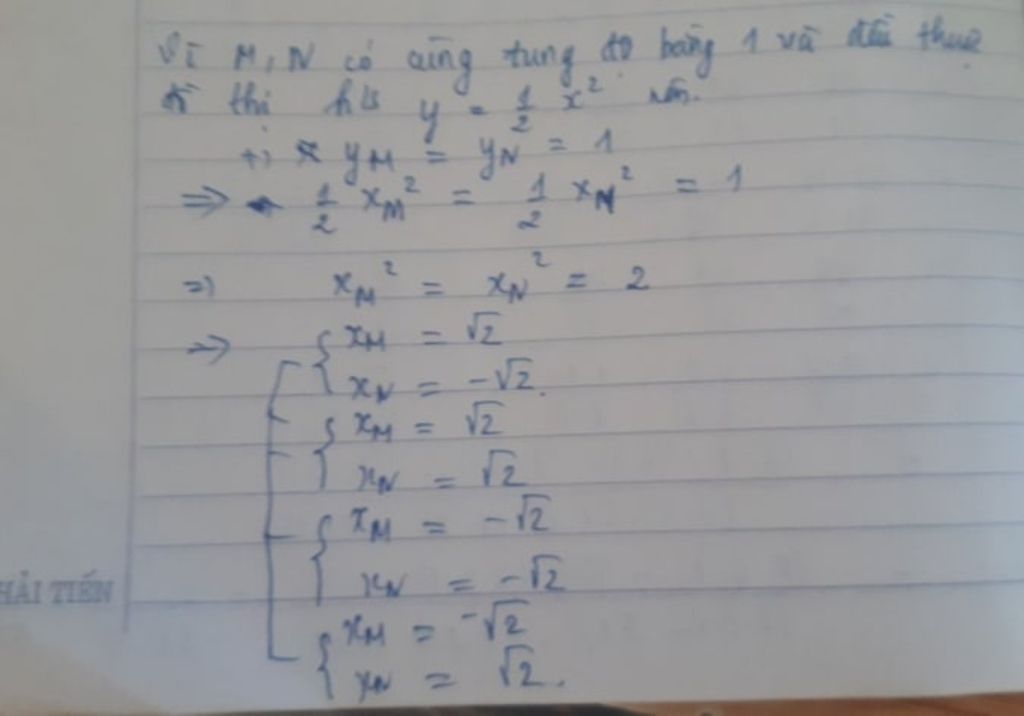 Vì M, N có cùng tung độ bằng 1 và đều thuộc
đồ thị h/s y = 1/2 x² nên.
+) y_M = y_N = 1
=> 1/2 x_M² = 1/2 x_N² = 1
=> x_M² = x_N² = 2
=> { x_M = √2
x_N = -√2.
{ x_M = √2
x_N = √2
{ x_M = -√2
x_N = -√2
{ x_M = -√2
x_N = √2.
HẢI TIẾN